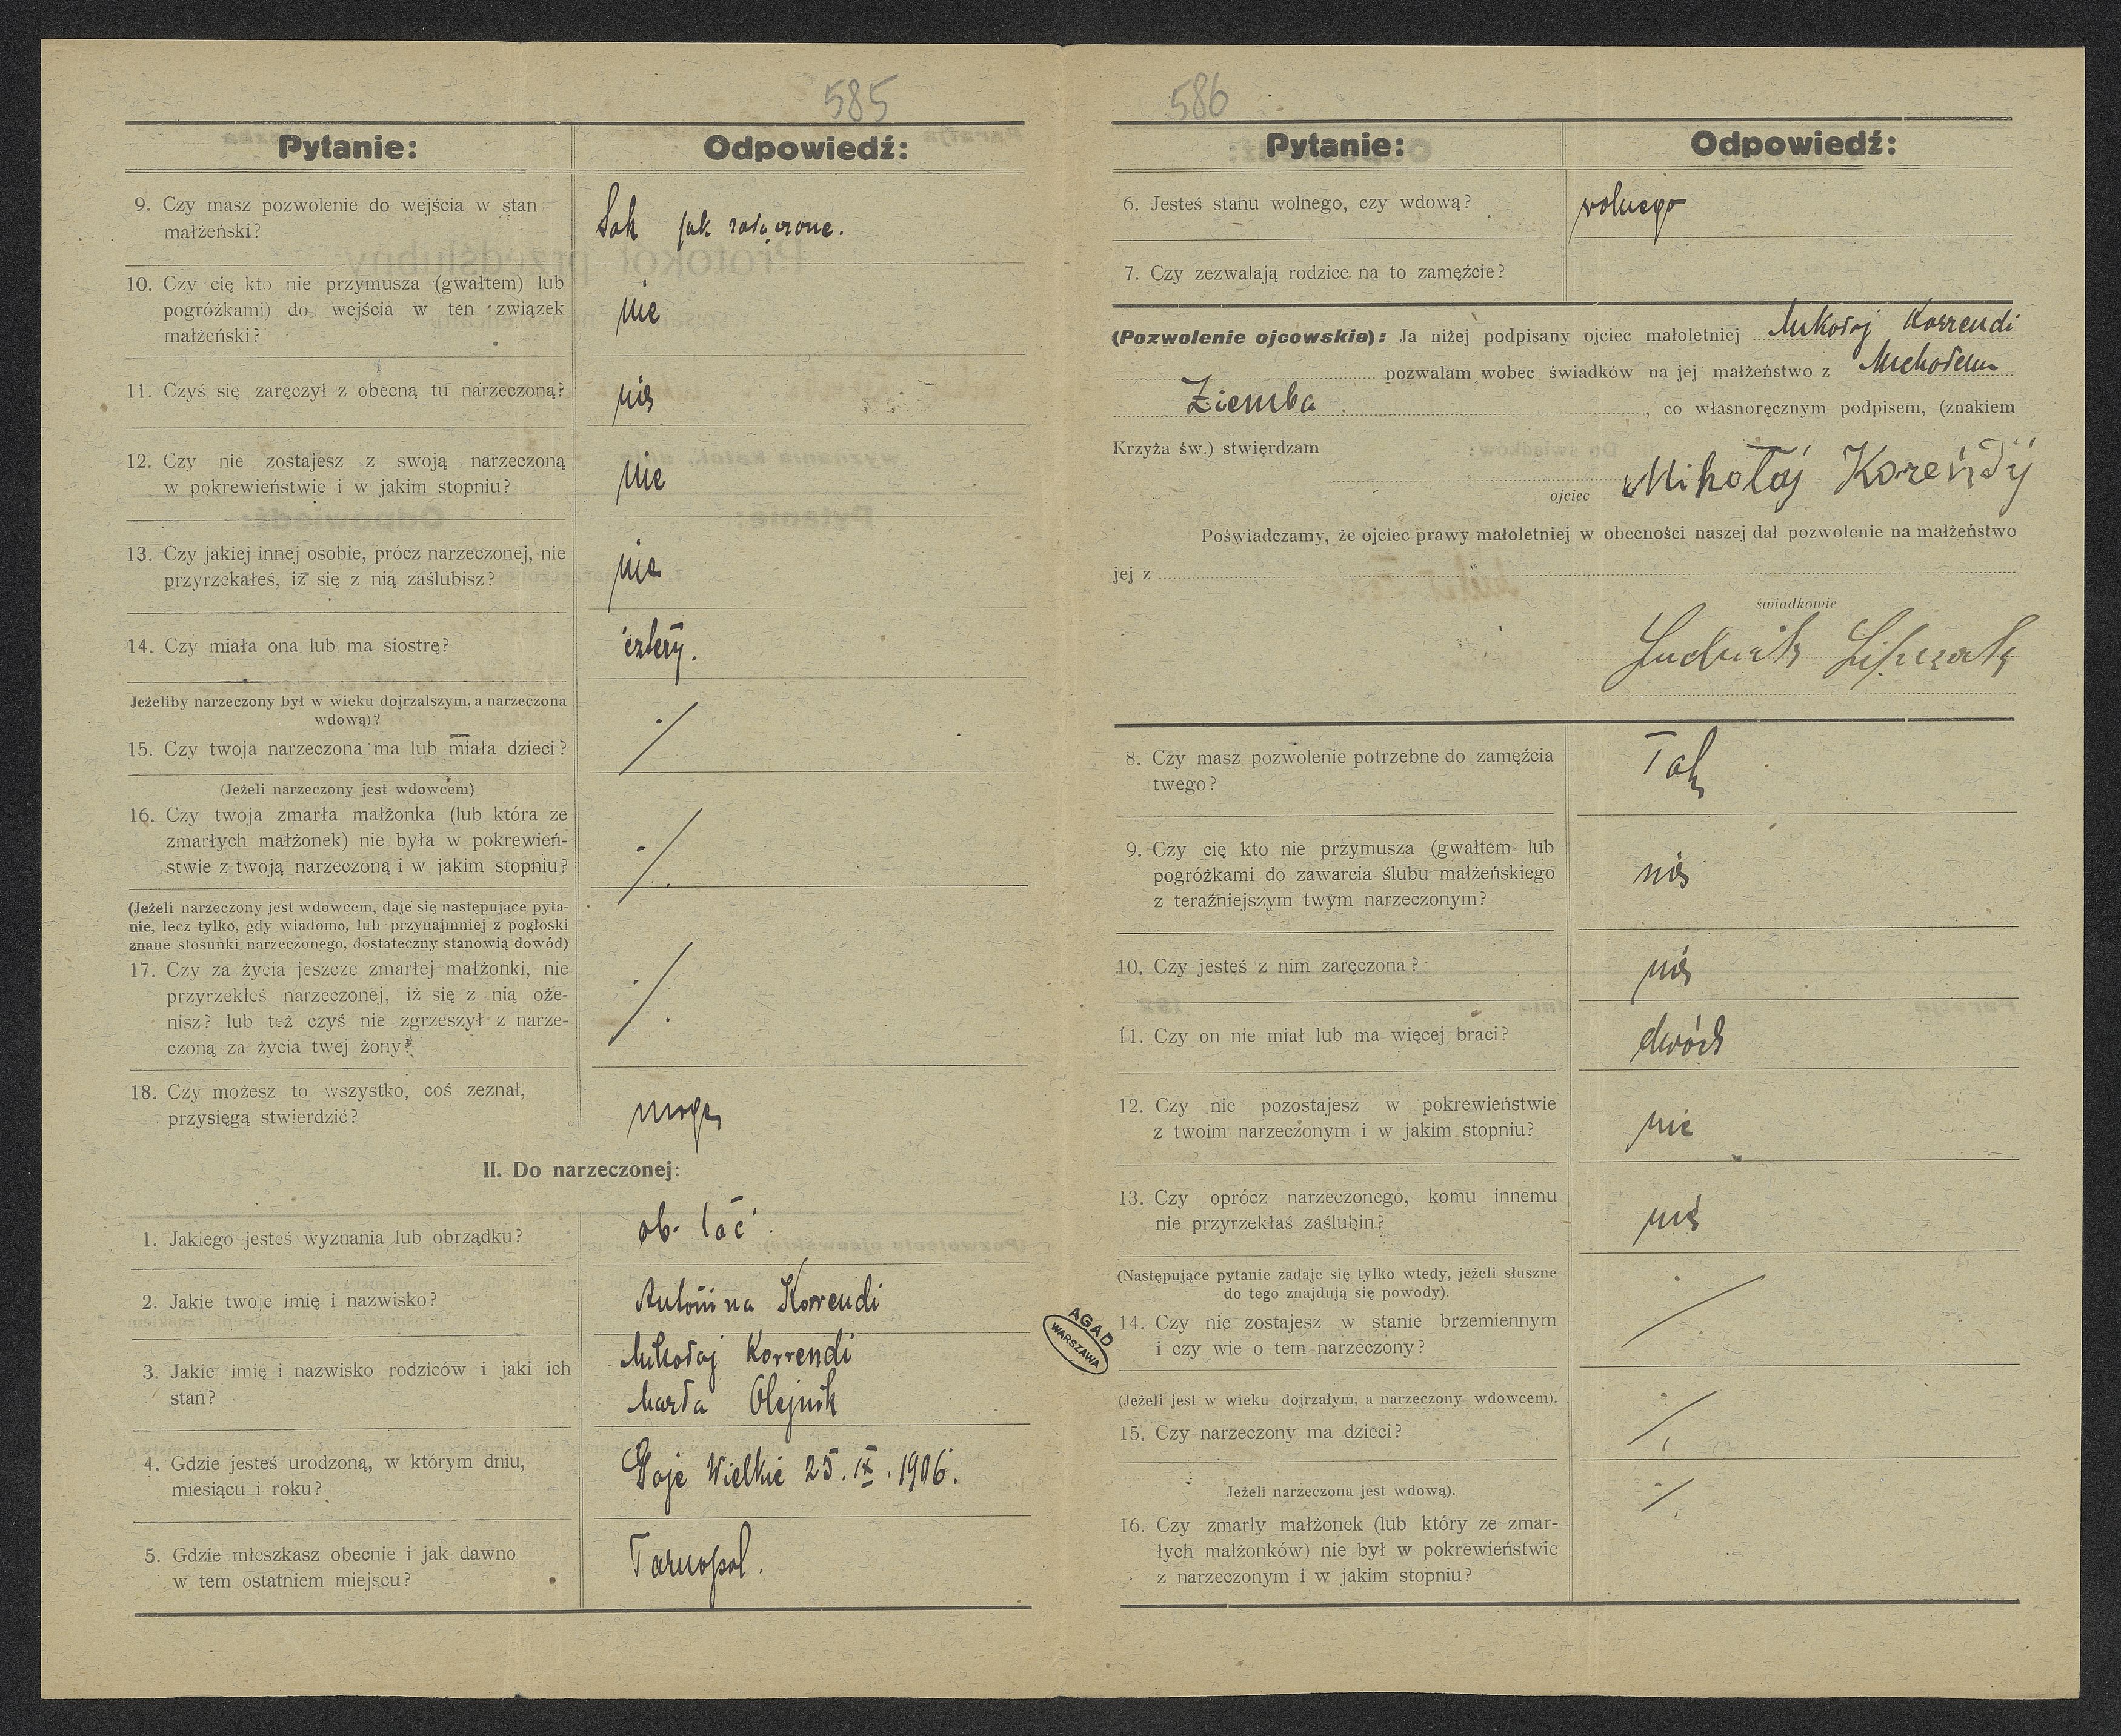 585
Pytanie: Odpowiedź:
9. Czy masz pozwolenie do wejścia w stan
małżeński?
Tak jak załączone.
10. Czy cię kto nie przymusza (gwałtem) lub
pogróżkami) do wejścia w ten związek
małżeński?
nie
11. Czyś się zaręczył z obecną tu narzeczoną?
nie
12. Czy nie zostajesz z swoją narzeczoną
w pokrewieństwie i w jakim stopniu?
nie
13. Czy jakiej innej osobie, prócz narzeczonej, nie
przyrzekałeś, iż się z nią zaślubisz?
nie
14. Czy miała ona lub ma siostrę?
cztery.
Jeżeliby narzeczony był w wieku dojrzalszym, a narzeczona
wdową)?
15. Czy twoja narzeczona ma lub miała dzieci?
(Jeżeli narzeczony jest wdowcem)
16. Czy twoja zmarła małżonka (lub która ze
zmarłych małżonek) nie była w pokrewień-
stwie z twoją narzeczoną i w jakim stopniu?
(Jeżeli narzeczony jest wdowcem, daje się następujące pyta-
nie, lecz tylko, gdy wiadomo, lub przynajmniej z pogłoski
znane stosunki narzeczonego, dostateczny stanowią dowód)
17. Czy za życia jeszcze zmarłej małżonki, nie
przyrzekłeś narzeczonej, iż się z nią oże-
nisz? lub też czyś nie zgrzeszył z narze-
czoną za życia twej żony?
18. Czy możesz to wszystko, coś zeznał,
przysięgą stwierdzić?
mogę
II. Do narzeczonej:
1. Jakiego jesteś wyznania lub obrządku?
ob. łać.
2. Jakie twoje imię i nazwisko?
Antonina Korrendi
3. Jakie imię i nazwisko rodziców i jaki ich
stan?
Mikołaj Korrendi
Marta Olejnik
4. Gdzie jesteś urodzoną, w którym dniu,
miesiącu i roku?
Gaje Wielkie 25. IX. 1906.
5. Gdzie mieszkasz obecnie i jak dawno
w tem ostatniem miejscu?
Tarnopol.
586
Pytanie: Odpowiedź:
6. Jesteś stanu wolnego, czy wdową?
wolnego
7. Czy zezwalają rodzice na to zamęźcie?
(Pozwolenie ojcowskie): Ja niżej podpisany ojciec małoletniej Mikołaj Korrendi
pozwalam wobec świadków na jej małżeństwo z Michałem
Ziemba , co własnoręcznym podpisem, (znakiem
Krzyża św.) stwierdzam
ojciec Mikołaj Koreńdij
Poświadczamy, że ojciec prawy małoletniej w obecności naszej dał pozwolenie na małżeństwo
jej z
świadkowie
Ludwik
8. Czy masz pozwolenie potrzebne do zamęźcia
twego?
Tak
9. Czy cię kto nie przymusza (gwałtem lub
pogróżkami do zawarcia ślubu małżeńskiego
z teraźniejszym twym narzeczonym?
nie
10. Czy jesteś z nim zaręczona?
nie
11. Czy on nie miał lub ma więcej braci?
dwóch
12. Czy nie pozostajesz w pokrewieństwie
z twoim narzeczonym i w jakim stopniu?
nie
13. Czy oprócz narzeczonego, komu innemu
nie przyrzekłaś zaślubin?
nie
(Następujące pytanie zadaje się tylko wtedy, jeżeli słuszne
do tego znajdują się powody).
14. Czy nie zostajesz w stanie brzemiennym
i czy wie o tem narzeczony?
AGAD
WARSZAWA
(Jeżeli jest w wieku dojrzałym, a narzeczony wdowcem).
15. Czy narzeczony ma dzieci?
Jeżeli narzeczona jest wdową).
16. Czy zmarły małżonek (lub który ze zmar-
łych małżonków) nie był w pokrewieństwie
z narzeczonym i w jakim stopniu?